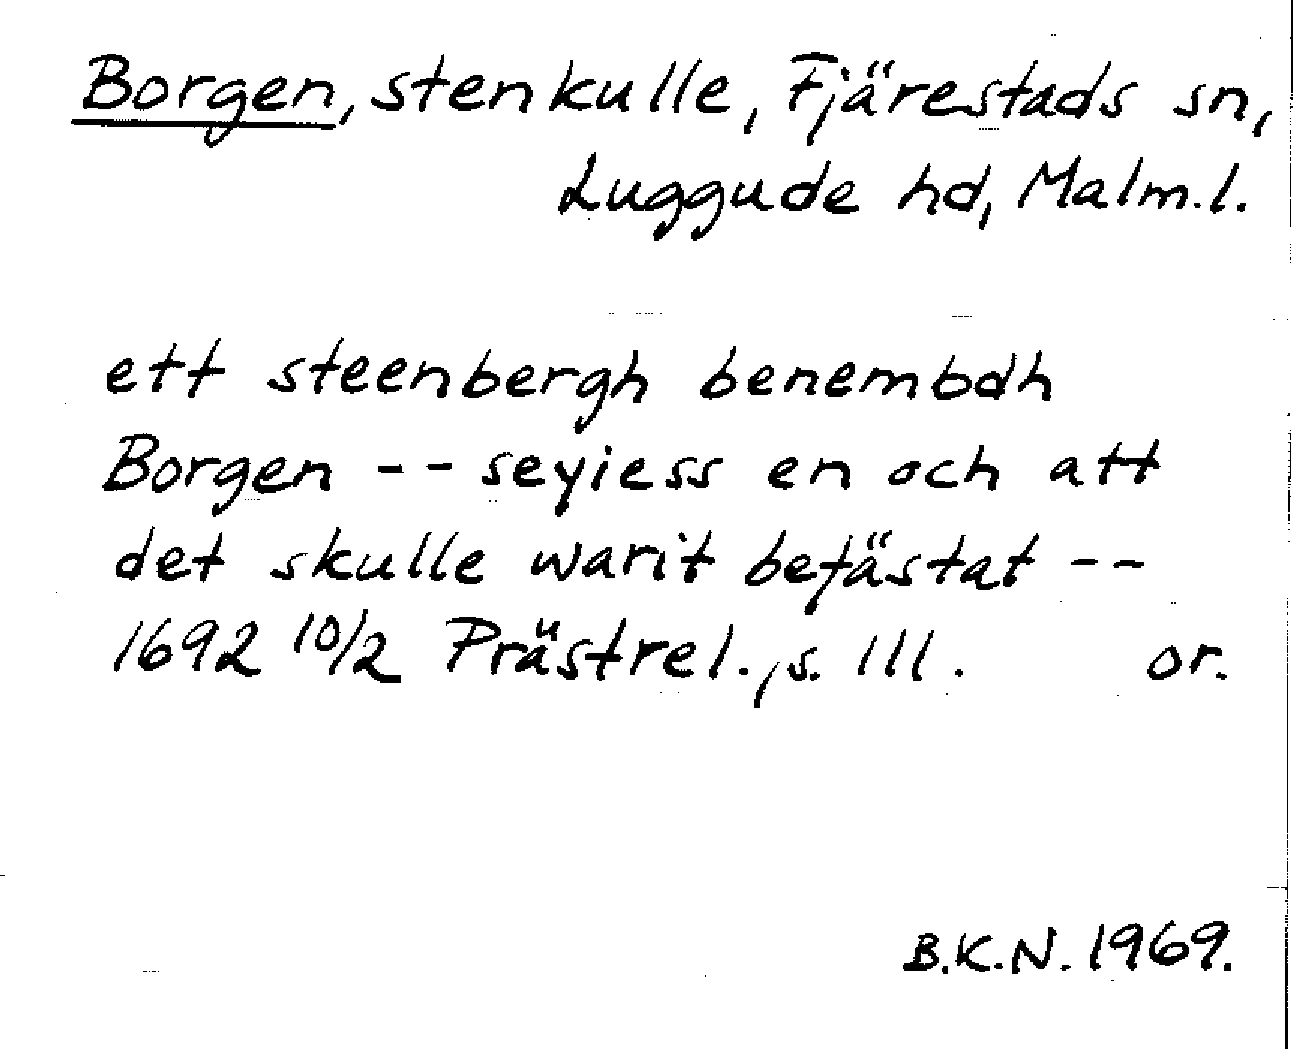 Borgen, stenkulle, Fjärestads sn,
Luggude hd, Malm.l.
ett steenbergh benembdh
Borgen -- seyiess en och att
det skulle warit befästat --
1692 10/2 Prästrel., s. 111. or.
B.K.N. 1969.